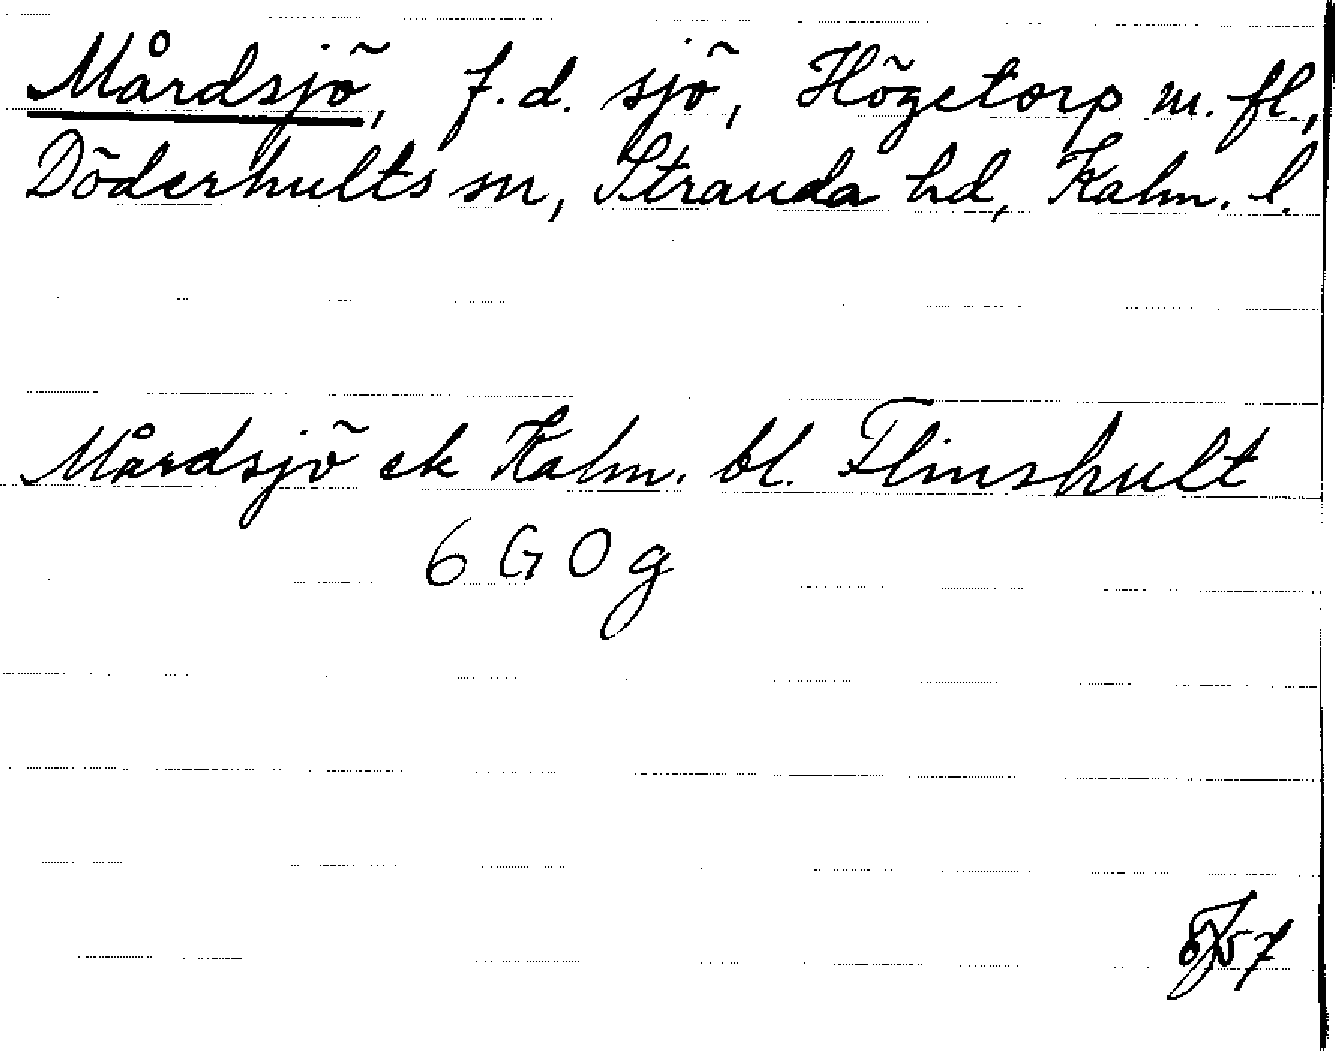 Mårdsjö, f.d. sjö, Högetorp m. fl.,
Döderhults sn, Stranda hd, Kalm. l.
Mårdsjö ek Kalm. bl. Flinshult
6 G O g